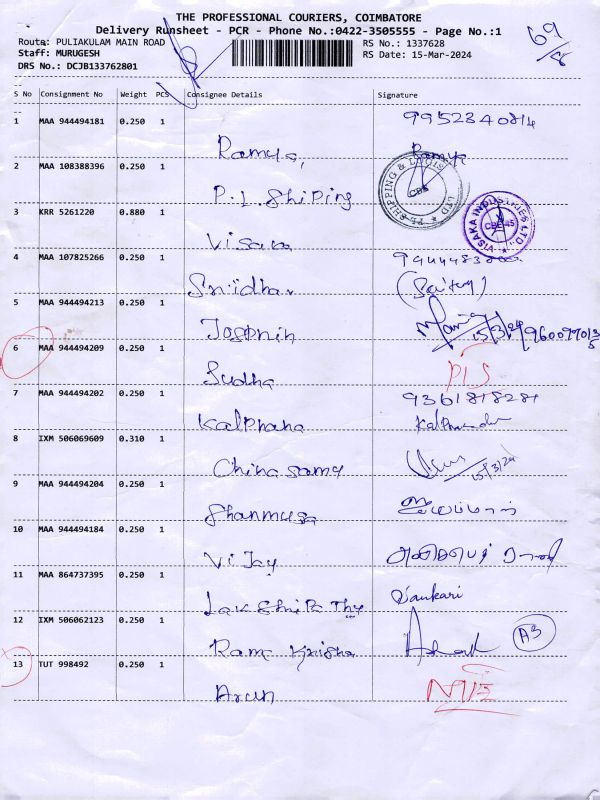 THE PROFESSIONAL COURIERS, COIMBATORE
Delivery Runsheet - PCR - Phone No.:0422-3505555 - Page No.:1
Route: PULIAKULAM MAIN ROAD
RS No.: 1337628
69/8
Staff: MURUGESH
RS Date: 15-Mar-2024
DRS No.: DCJB133762801
S No Consignment No Weight PCS Consignee Details Signature
1 MAA 944494181 0.250 1 Ramya, 9952340814 Ramya
2 MAA 108388396 0.250 1 P.L. Shiping SHIPPING & LOGIS LTD CBE
3 KRR 5261220 0.880 1 Visaka VISAKA INDUSTRIES LTD., CBE-45
4 MAA 107825266 0.250 1 Sridhar
5 MAA 944494213 0.250 1 15/3/24
6 MAA 944494209 0.250 1 Sudha
7 MAA 944494202 0.250 1 Kalphana 9361818281
8 IXM 506069609 0.310 1 China samy 15/3/24
9 MAA 944494204 0.250 1 Shanmuga
10 MAA 944494184 0.250 1 Vijay
11 MAA 864737395 0.250 1 Lakshmi Pathy
12 IXM 506062123 0.250 1 Rama Krisha A3
13 TUT 998492 0.250 1 Arun